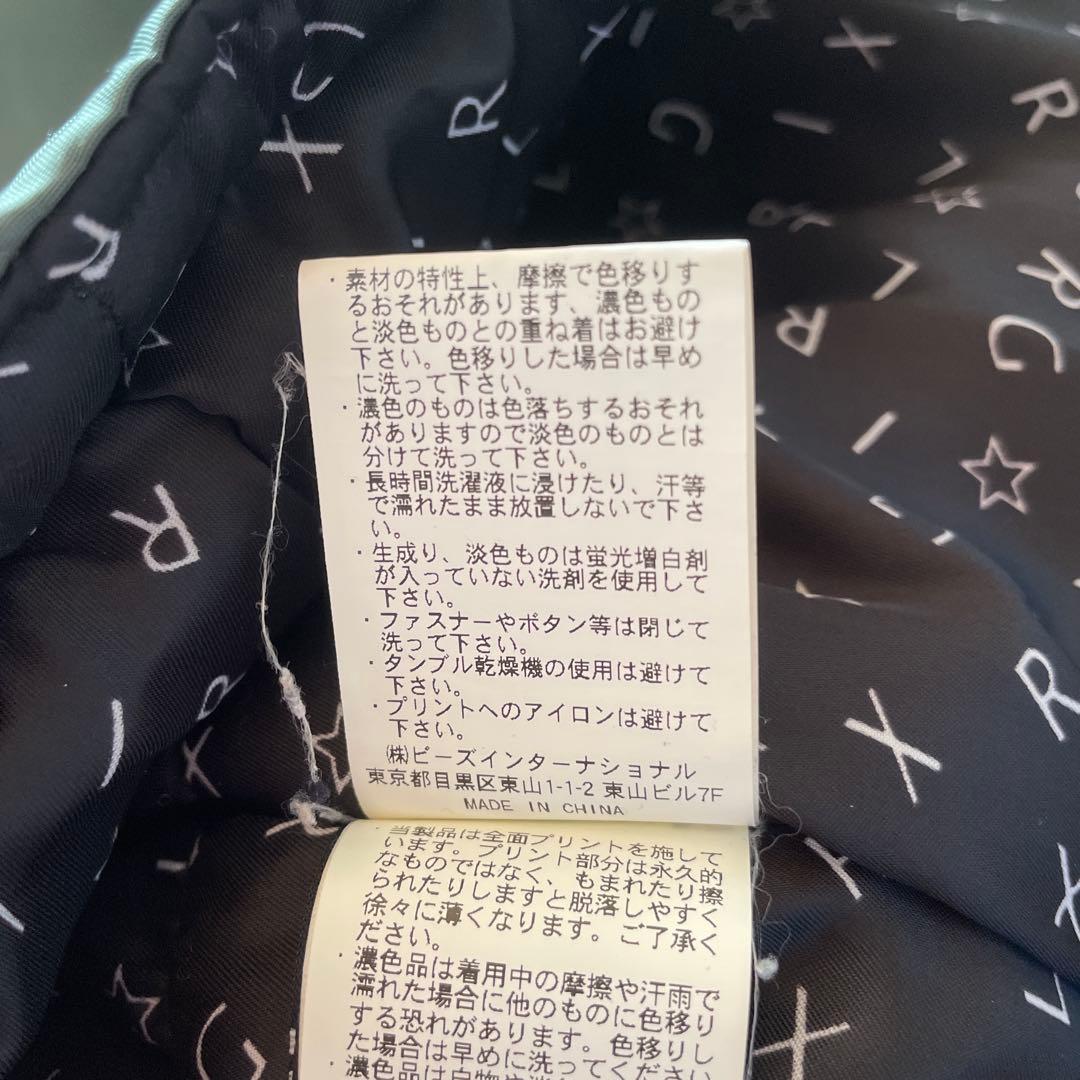 ・素材の特性上、摩擦で色移りす
るおそれがあります、濃色もの
と淡色ものとの重ね着はお避け
下さい。色移りした場合は早め
に洗って下さい。
・濃色のものは色落ちするおそれ
がありますので淡色のものとは
分けて洗って下さい。
・長時間洗濯液に浸けたり、汗等
で濡れたまま放置しないで下さ
い。
・生成り、淡色ものは蛍光増白剤
が入っていない洗剤を使用して
下さい。
・ファスナーやボタン等は閉じて
洗って下さい。
・タンブル乾燥機の使用は避けて
下さい。
・プリントへのアイロンは避けて
下さい。
㈱ビーズインターナショナル
東京都目黒区東山1-1-2 東山ビル7F
MADE IN CHINA
・当製品は全面プリントを施して
います。プリント部分は永久的
なものではなく、もまれたり擦
られたりしますと脱落しやすく
徐々に薄くなります。ご了承く
ださい。
・濃色品は着用中の摩擦や汗雨で
濡れた場合に他のものに色移り
する恐れがあります。色移りし
た場合は早めに洗ってください
・濃色品は白物や淡